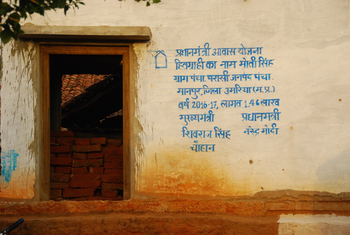 प्रधानमंत्री आवास योजना
हितग्राही का नाम मोती सिंह
ग्राम पंचा. परासी जनपद पंचा.
मानपुर, जिला उमरिया (म.प्र.)
वर्ष 2016-17, लागत 1.46 लाख
मुख्यमंत्री प्रधानमंत्री
शिवराज सिंह नरेन्द्र मोदी
चौहान